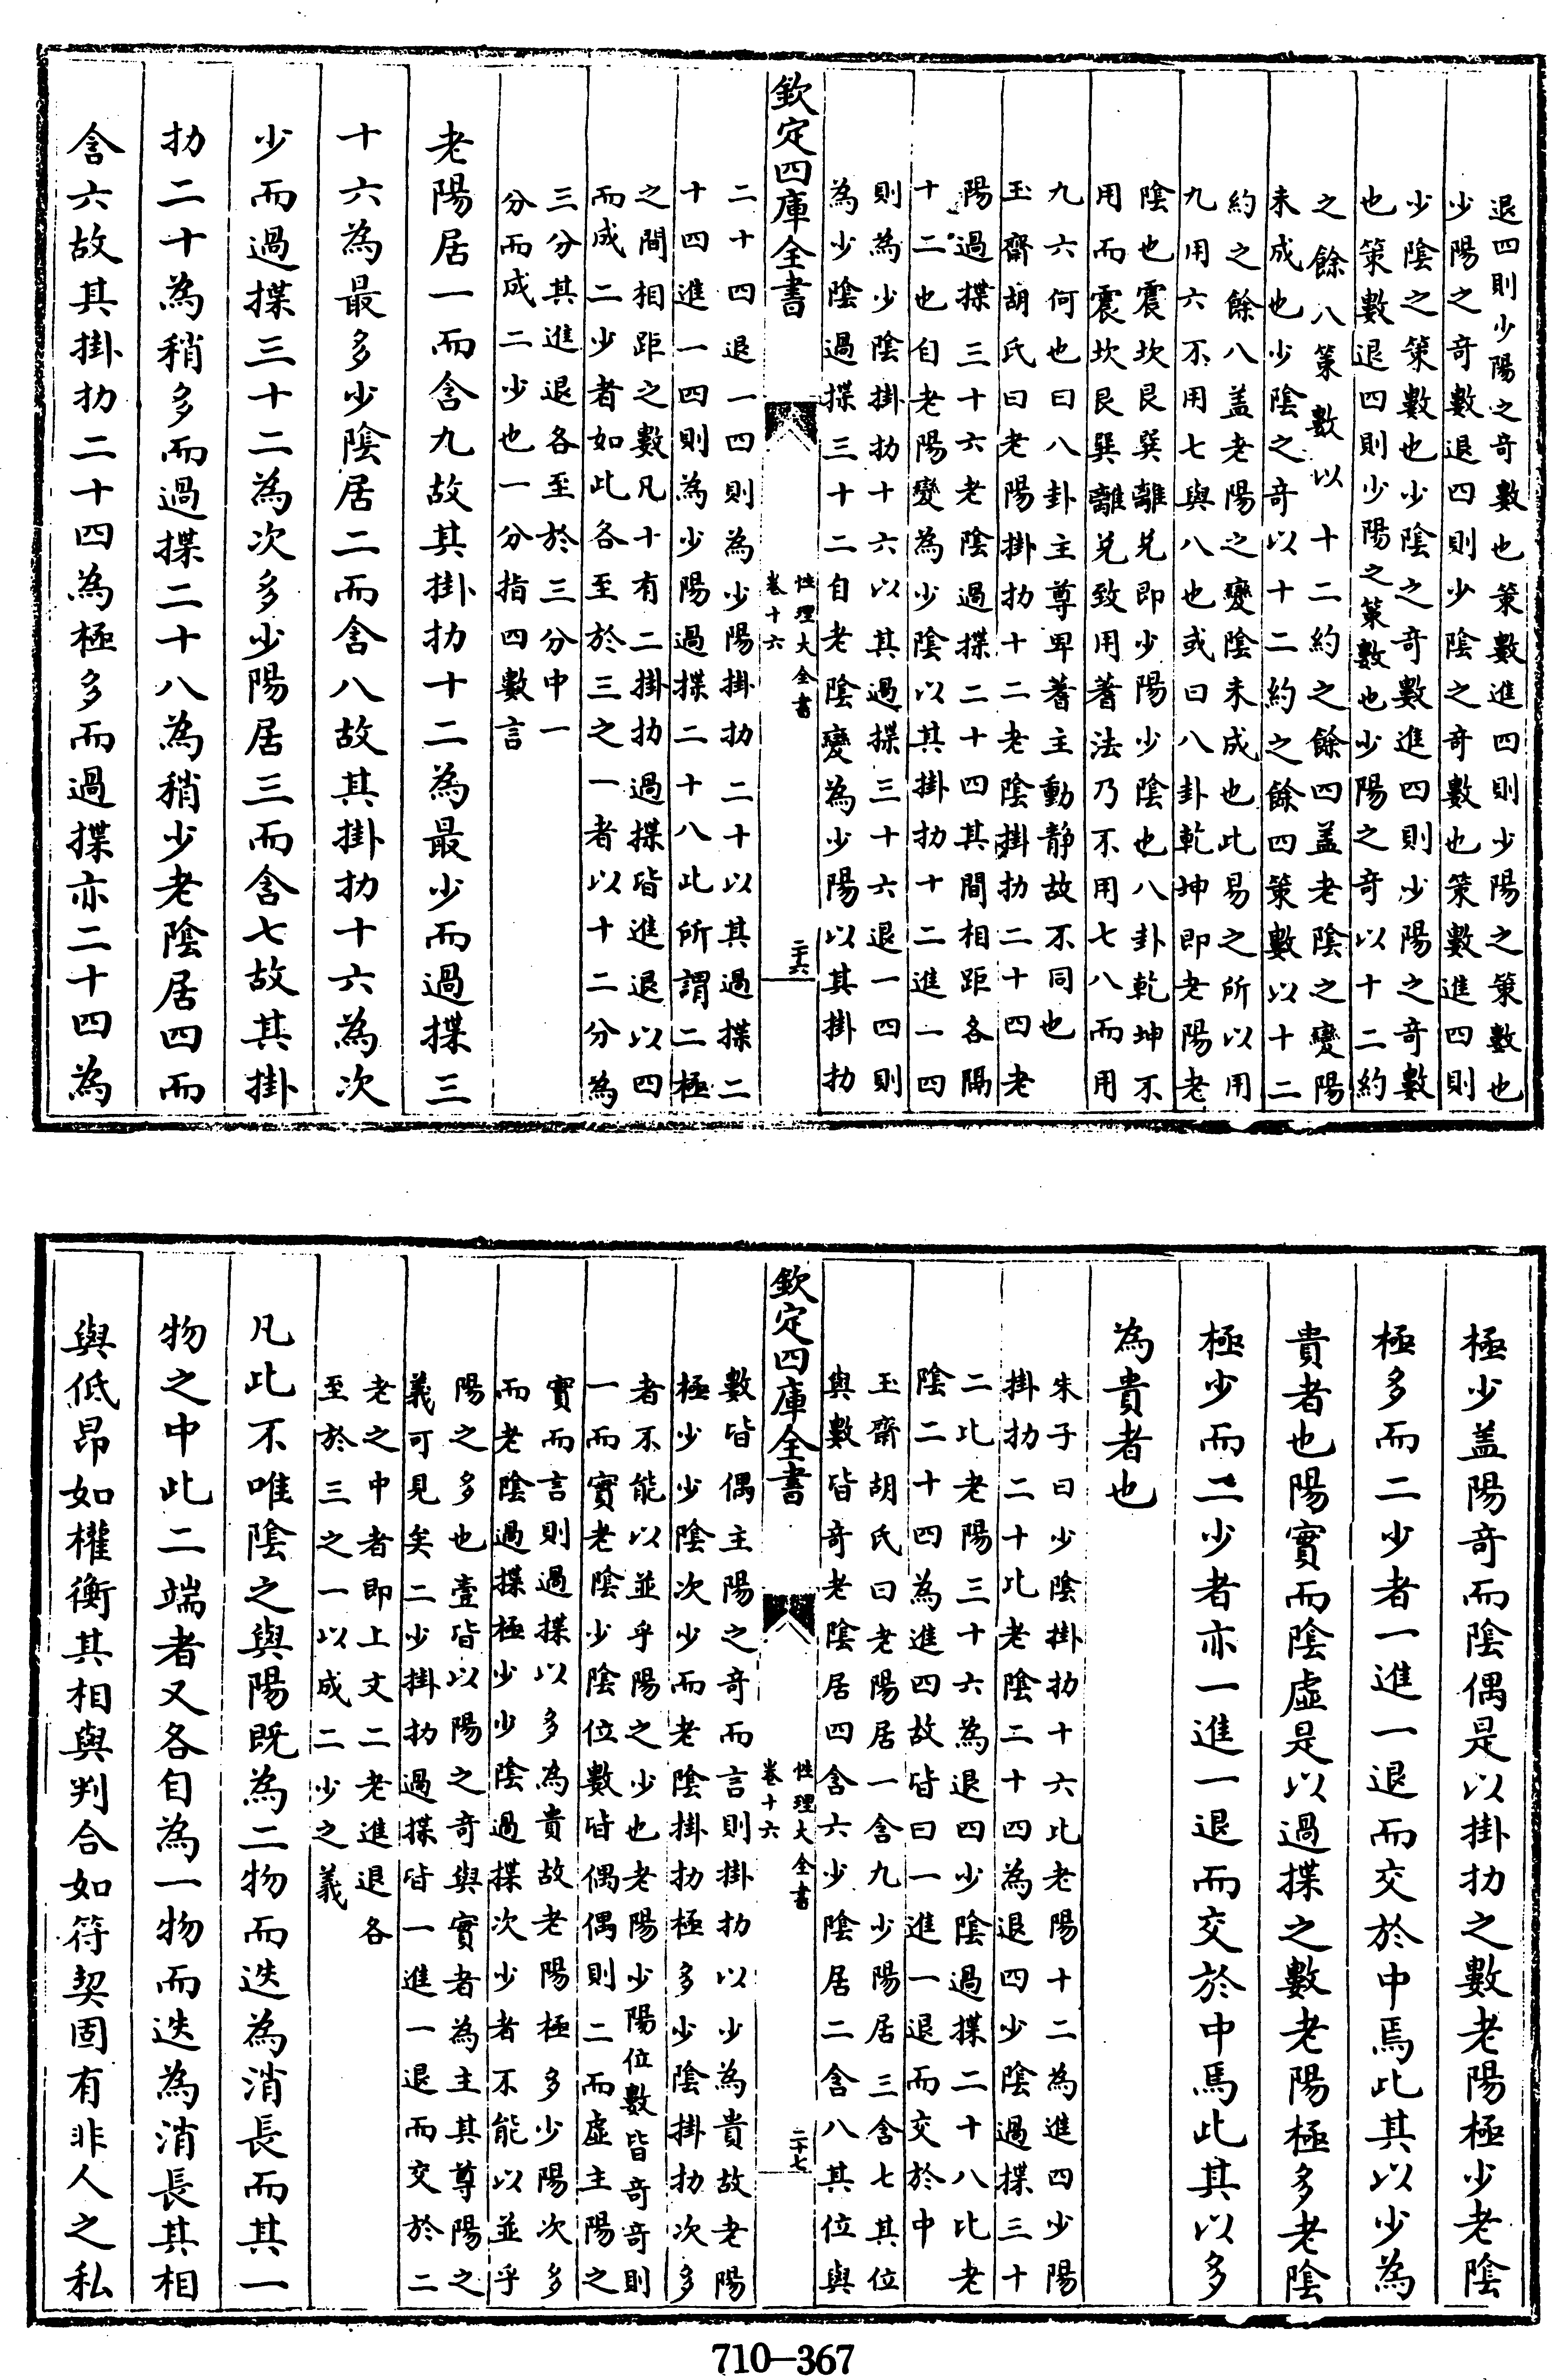 退四則少陽之奇數也策數進四則少陽之策數也
少陽之奇數退四則少陰之奇數也策數進四則
少陰之策數也少陰之奇數進四則少陽之奇數
也策數退四則少陽之策數也少陽之奇以十二約
之餘八策數以十二約之餘四盖老陰之變陽
未成也少陰之奇以十二約之餘四策數以十二
約之餘八盖老陽之變陰未成也此易之所以用
九用六不用七與八也或曰八卦乾坤即老陽老
陰也震坎艮巽離兌即少陽少陰也八卦乾坤不
用而震坎艮巽離兌致用蓍法乃不用七八而用
九六何也曰八卦主尊卑蓍主動静故不同也
玉齋胡氏曰老陽掛扐十二老陰掛扐二十四老
陽過揲三十六老陰過揲二十四其間相距各隔
十二也自老陽變為少陰以其掛扐十二進一四
則為少陰掛扐十六以其過揲三十六退一四則
為少陰過揲三十二自老陰變為少陽以其掛扐
欽定四庫全書
性理大全書
卷十六
二十六
二十四退一四則為少陽掛扐二十以其過揲二
十四進一四則為少陽過揲二十八此所謂二極
之間相距之數凡十有二掛扐過揲皆進退以四
而成二少者如此各至於三之一者以十二分為
三分其進退各至於三分中一
分而成二少也一分指四數言
老陽居一而含九故其掛扐十二為最少而過揲三
十六為最多少陰居二而含八故其掛扐十六為次
少而過揲三十二為次多少陽居三而含七故其掛
扐二十為稍多而過揲二十八為稍少老陰居四而
含六故其掛扐二十四為極多而過揲亦二十四為
極少盖陽奇而陰偶是以掛扐之數老陽極少老陰
極多而二少者一進一退而交於中焉此其以少為
貴者也陽實而陰虛是以過揲之數老陽極多老陰
極少而二少者亦一進一退而交於中焉此其以多
為貴者也
朱子曰少陰掛扐十六比老陽十二為進四少陽
掛扐二十比老陰二十四為退四少陰過揲三十
二比老陽三十六為退四少陰過揲二十八比老
陰二十四為進四故皆曰一進一退而交於中
玉齋胡氏曰老陽居一含九少陽居三含七其位
與數皆奇老陰居四含六少陰居二含八其位與
欽定四庫全書
性理大全書
卷十六
二十七
數皆偶主陽之奇而言則掛扐以少為貴故老陽
極少少陰次少而老陰掛扐極多少陰掛扐次多
者不能以並乎陽之少也老陽少陽位數皆奇奇則
一而實老陰少陰位數皆偶偶則二而虛主陽之
實而言則過揲以多為貴故老陽極多少陽次多
而老陰過揲極少少陰過揲次少者不能以並乎
陽之多也壹皆以陽之奇與實者為主其尊陽之
義可見矣二少掛扐過揲皆一進一退而交於二
老之中者即上文二老進退各
至於三之一以成二少之義
凡此不唯陰之與陽既為二物而迭為消長而其一
物之中此二端者又各自為一物而迭為消長其相
與低昂如權衡其相與判合如符契固有非人之私
710-367